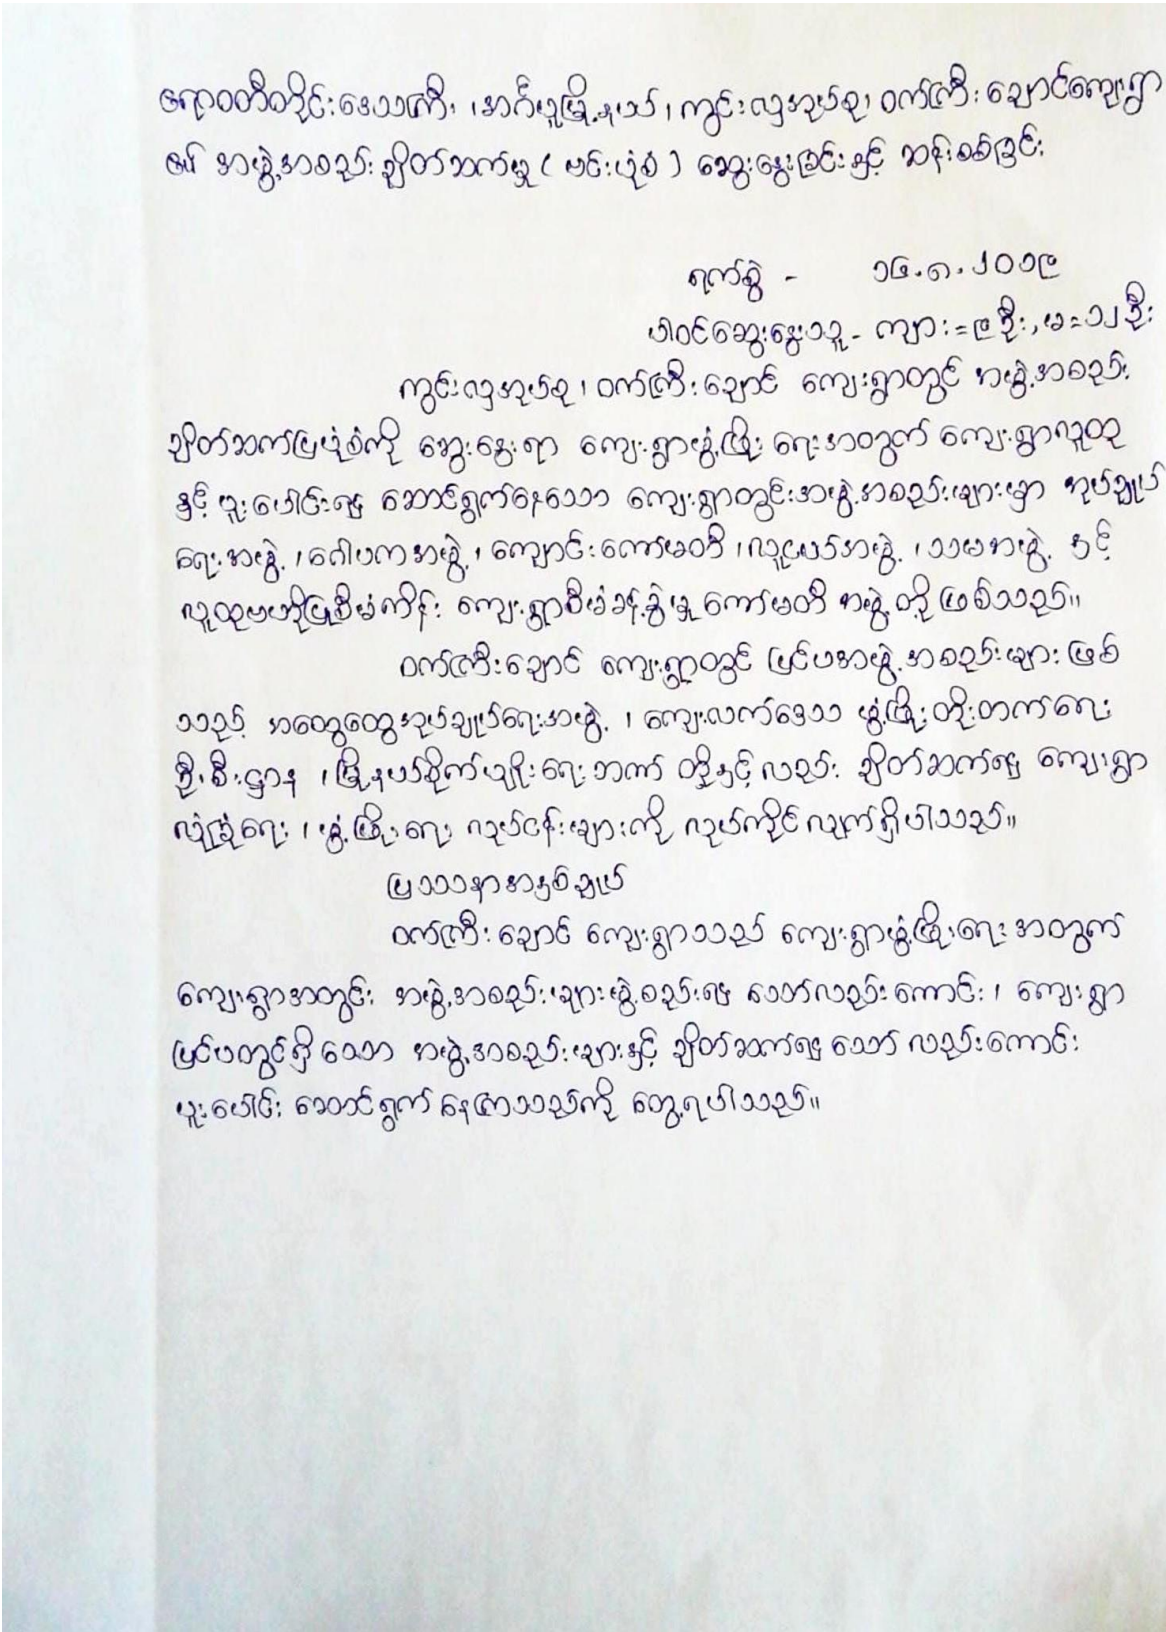 ဧရာဝတီတိုင်းဒေသကြီး ၊ အင်္ဂပူမြို့နယ် ၊ ကွင်းလှအုပ်စု ၊ ဝက်ကြီးချောင်ကျေးရွာ
၏ အဖွဲ့အစည်းချိတ်ဆက်မှု ( ဗင်းပုံစံ ) ဆွေးနွေးခြင်းနှင့် ဆန်းစစ်ခြင်း
ရက်စွဲ - ၁၆.၈.၂၀၁၉
ပါဝင်ဆွေးနွေးသူ - ကျား = ၉ ဦး , မ = ၁၂ ဦး
ကွင်းလှအုပ်စု ၊ ဝက်ကြီးချောင် ကျေးရွာတွင် အဖွဲ့အစည်း
ချိတ်ဆက်ပြပုံစံကို ဆွေးနွေးရာ ကျေးရွာဖွံ့ဖြိုးရေးအတွက် ကျေးရွာလူထု
နှင့် ပူးပေါင်း၍ ဆောင်ရွက်နေသော ကျေးရွာတွင်းအဖွဲ့အစည်းများမှာ အုပ်ချုပ်
ရေးအဖွဲ့ ၊ ဂေါပကအဖွဲ့ ၊ ကျောင်းကော်မတီ ၊ လူငယ်အဖွဲ့ ၊ သမအဖွဲ့ နှင့်
လူထုဗဟိုပြုစီမံကိန်း ကျေးရွာစီမံခန့်ခွဲမှု ကော်မတီ အဖွဲ့ တို့ ဖြစ်သည်။
ဝက်ကြီးချောင် ကျေးရွာတွင် ပြင်ပအဖွဲ့အစည်းများ ဖြစ်
သည့် အထွေထွေအုပ်ချုပ်ရေးအဖွဲ့ ၊ ကျေးလက်ဒေသ ဖွံ့ဖြိုးတိုးတက်ရေး
ဦးစီးဌာန ၊ မြို့နယ်စိုက်ပျိုးရေးဘဏ် တို့နှင့်လည်း ချိတ်ဆက်၍ ကျေးရွာ
လုံခြုံရေး ၊ ဖွံ့ဖြိုးရေး လုပ်ငန်းများကို လုပ်ကိုင်လျက်ရှိပါသည်။
ပြဿနာအနှစ်ချုပ်
ဝက်ကြီးချောင် ကျေးရွာသည် ကျေးရွာဖွံ့ဖြိုးရေး အတွက်
ကျေးရွာအတွင်း အဖွဲ့အစည်းများဖွဲ့စည်း၍ သော်လည်းကောင်း ၊ ကျေးရွာ
ပြင်ပတွင်ရှိသော အဖွဲ့အစည်းများနှင့် ချိတ်ဆက်၍ သော်လည်းကောင်း
ပူးပေါင်း ဆောင်ရွက် နေကြသည်ကို တွေ့ရပါသည်။